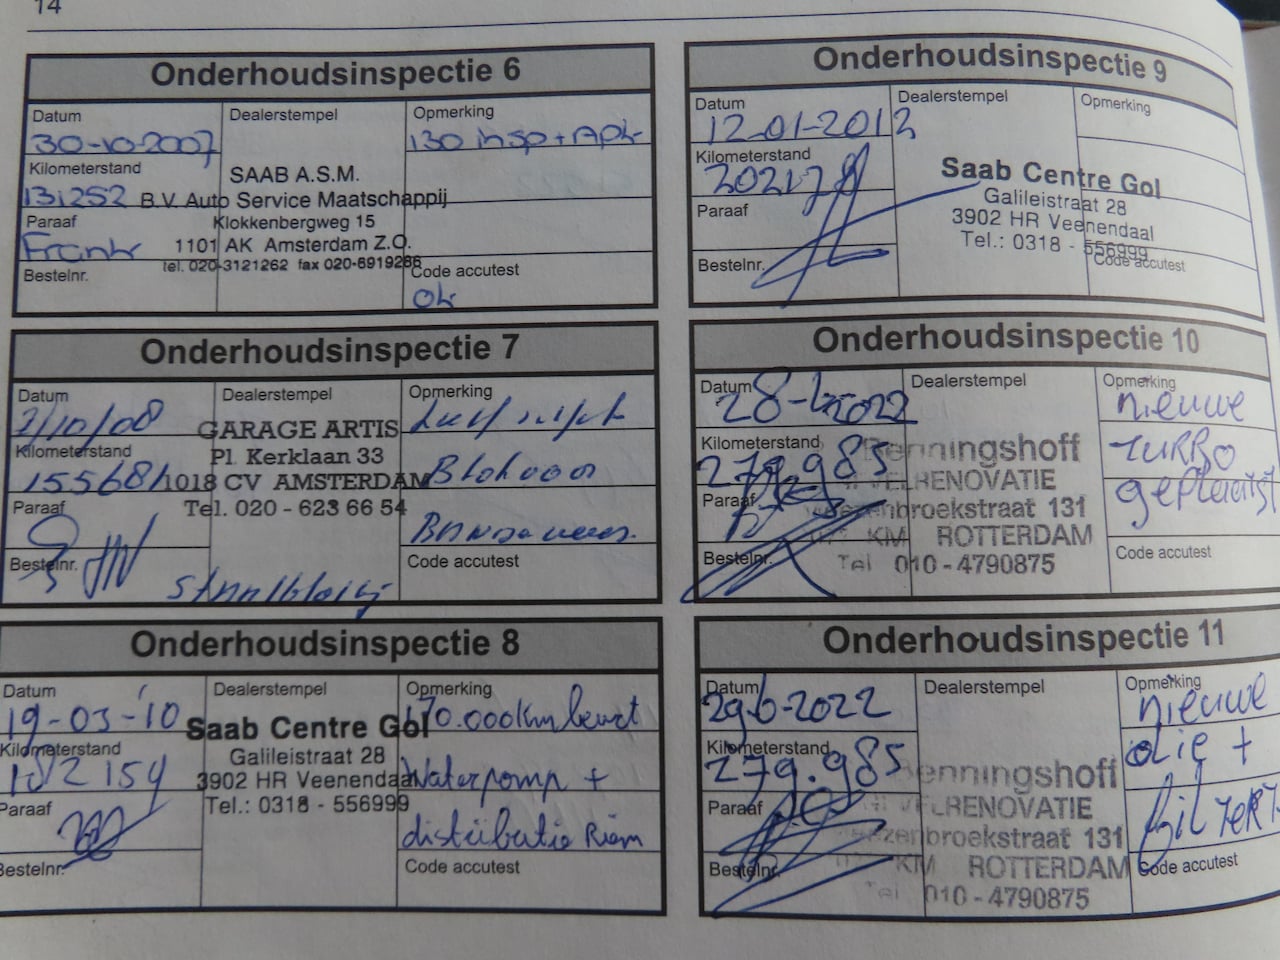 14
Onderhoudsinspectie 6
Datum
30-10-2007
Kilometerstand
131252
Paraaf
Frank
Bestelnr.
Dealerstempel
SAAB A.S.M.
B.V. Auto Service Maatschappij
Klokkenbergweg 15
1101 AK Amsterdam Z.O.
tel. 020-3121262 fax 020-6919266
Opmerking
130 insp + APK
Code accutest
Ok
Onderhoudsinspectie 7
Datum
7/10/08
Kilometerstand
155681
Paraaf
Bestelnr.
Dealerstempel
GARAGE ARTIS
Pl. Kerklaan 33
1018 CV AMSTERDAM
Tel. 020 - 623 66 54
Opmerking
Code accutest
Onderhoudsinspectie 8
Datum
19-03-'10
Kilometerstand
182154
Paraaf
Bestelnr.
Dealerstempel
Saab Centre Gol
Galileistraat 28
3902 HR Veenendaal
Tel.: 0318 - 556999
Opmerking
170.000km beurt
Waterpomp +
distributie Riem
Code accutest
Onderhoudsinspectie 9
Datum
12-01-2012
Kilometerstand
202178
Paraaf
Bestelnr.
Dealerstempel
Saab Centre Gol
Galileistraat 28
3902 HR Veenendaal
Tel.: 0318 - 556999
Opmerking
Code accutest
Onderhoudsinspectie 10
Datum
28-6-2022
Kilometerstand
279.985
Paraaf
Bestelnr.
Dealerstempel
Benningshoff
RENOVATIE
broekstraat 131
KM ROTTERDAM
Tel 010 - 4790875
Opmerking
nieuwe
TURBO
geplaatst
Code accutest
Onderhoudsinspectie 11
Datum
29-6-2022
Kilometerstand
279.985
Paraaf
Bestelnr.
Dealerstempel
enningshoff
RENOVATIE
broekstraat 131
KM ROTTERDAM
Tel 010 - 4790875
Opmerking
nieuwe
olie +
filters
Code accutest